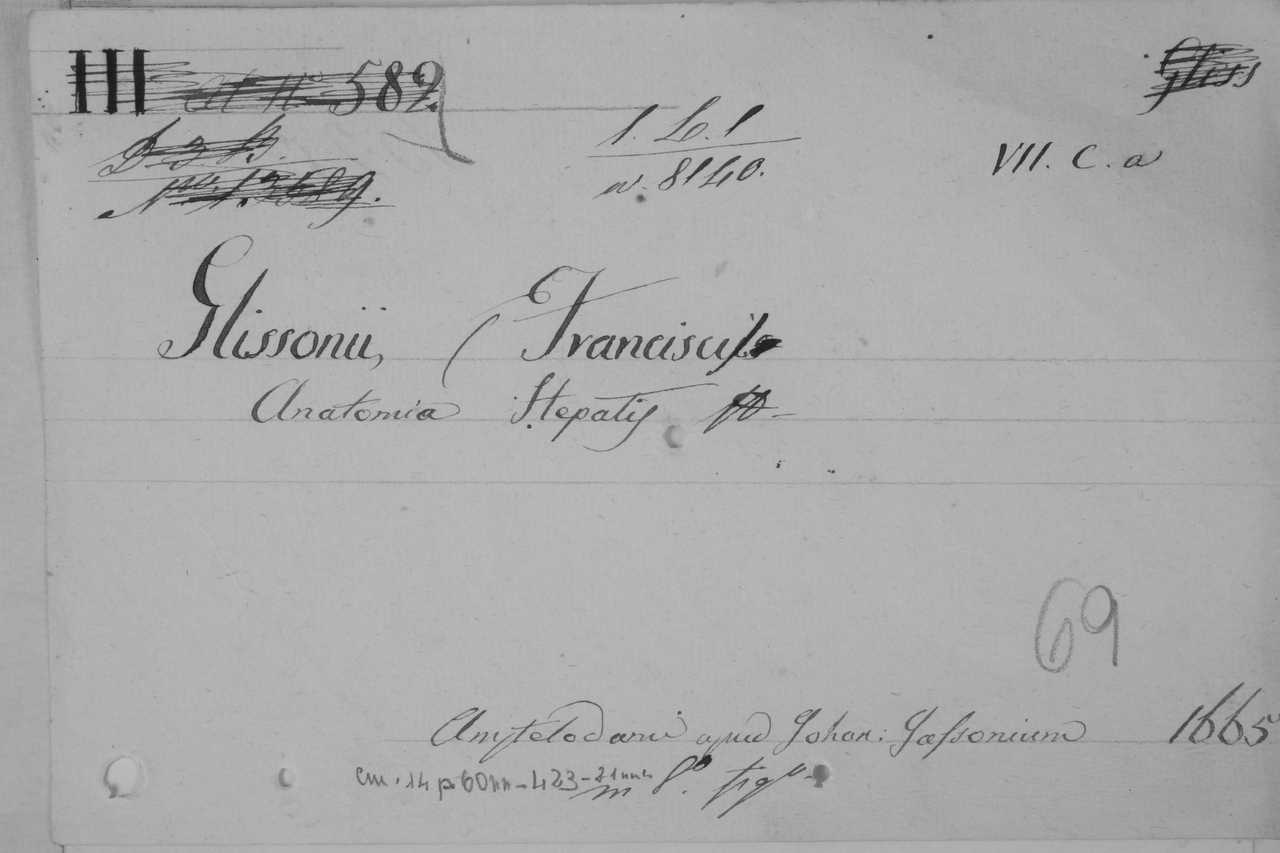 III 582
Gliss
1. L. 1
VII. C. a
n. 8140.
Glissonii, (Francisci)
Anatomia Hepatis
69
Amstelodami apud Johan: Jaſsonium 1665
cm. 14 p. 60nn-423-21nn. in 8° fig.